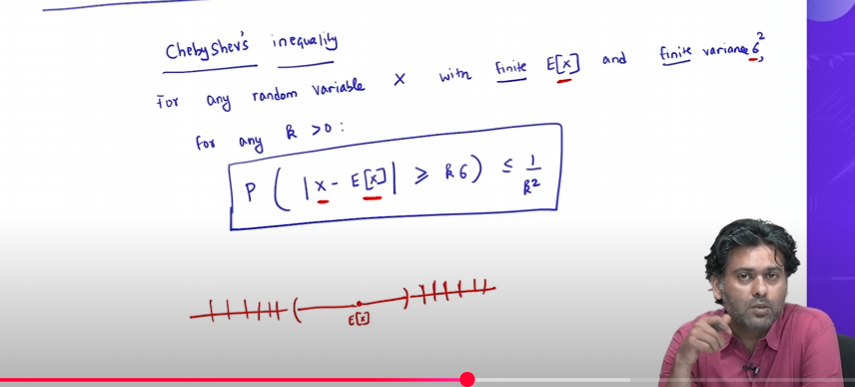 Chebyshev's inequality
For any random variable X with finite E[X] and finite variance σ²,
for any k > 0 :
P ( |X - E[X]| ≥ kσ ) ≤ 1/k²
E[X]